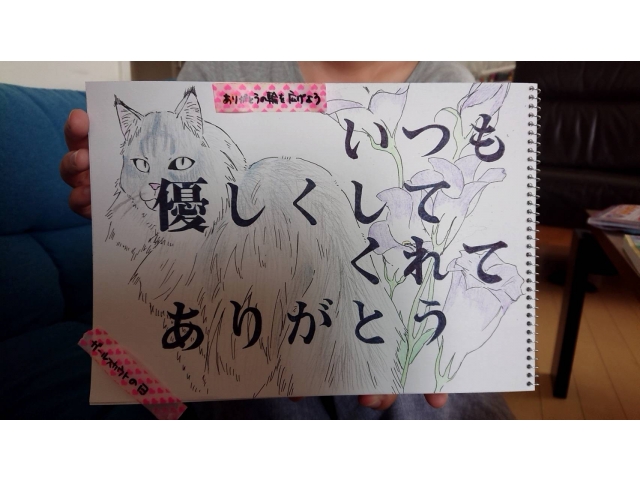 ありがとうの輪を広げよう
いつも
優しくして
くれて
ありがとう
ガールスカウトの日